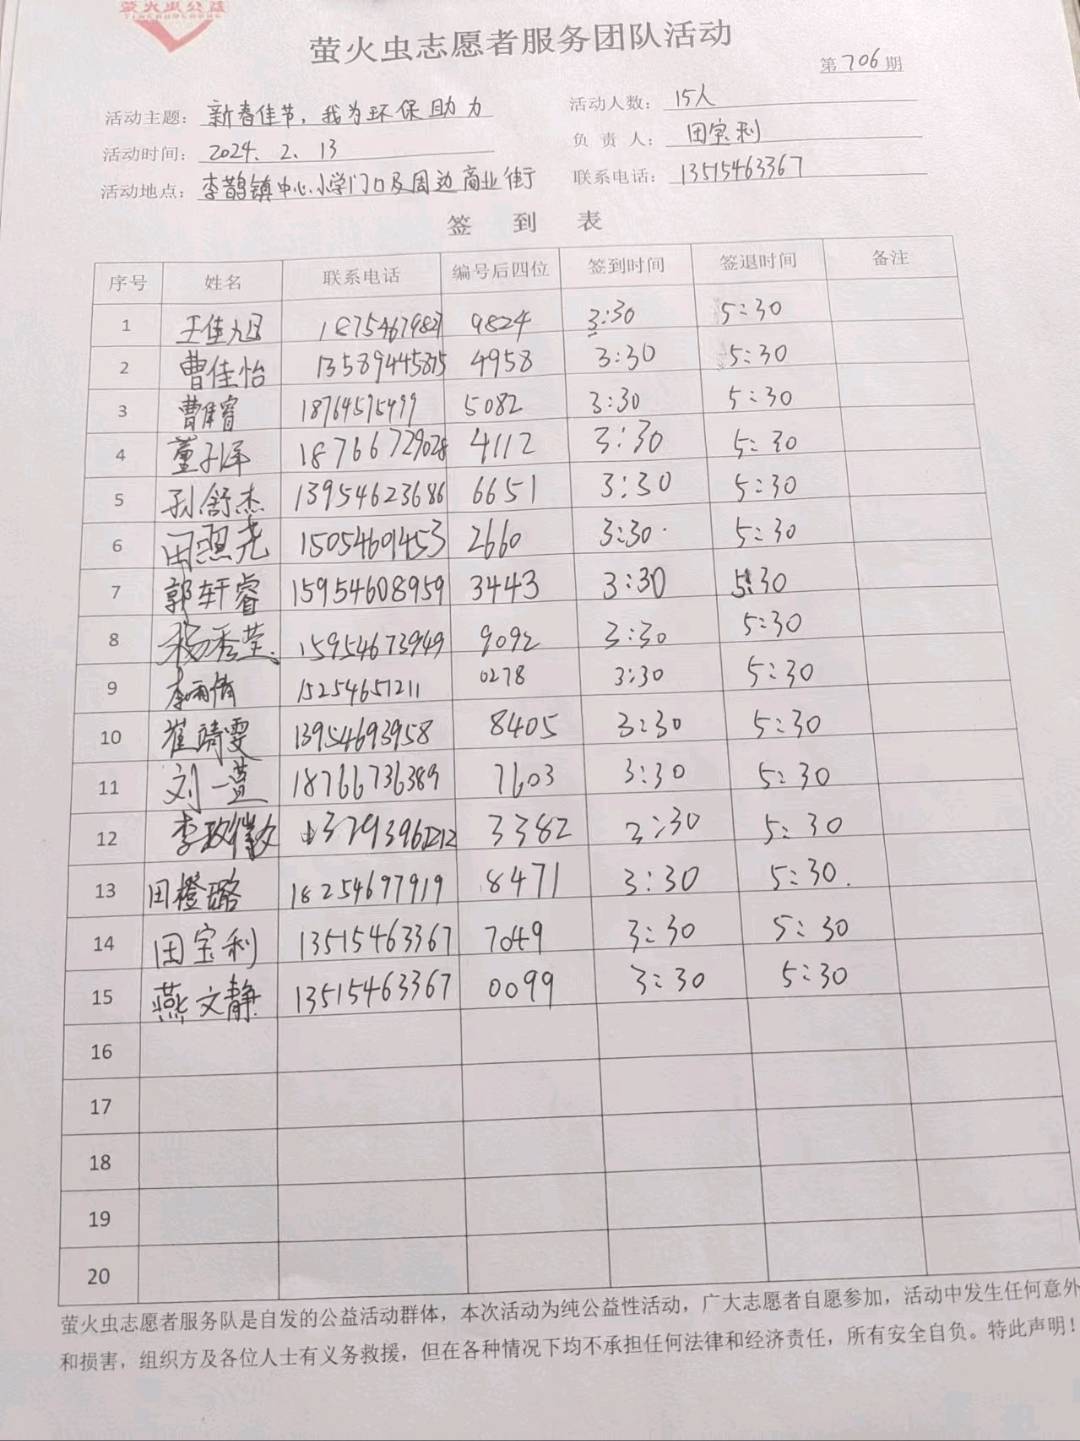 萤火虫公益
萤火虫志愿者服务团队活动
第706期
活动主题：新春佳节，我为环保助力
活动人数：15人
活动时间：2024.2.13
负责人：田宝利
活动地点：李鹊镇中心小学门口及周边商业街
联系电话：13515463367
签到表
序号 姓名 联系电话 编号后四位 签到时间 签退时间 备注
1 王佳旭 9824 3:30 5:30
2 曹佳怡 4958 3:30 5:30
3 曹睿 5082 3:30 5:30
4 董子泽 18766729028 4112 3:30 5:30
5 孙舒杰 13954623686 6651 3:30 5:30
6 田照尧 15054601453 2660 3:30 5:30
7 郭轩睿 15954608959 3443 3:30 5:30
8 杨秀莹 15954673949 9092 3:30 5:30
9 李雨倩 15254651211 0278 3:30 5:30
10 崔晴雯 13954693958 8405 3:30 5:30
11 刘一萱 18766736389 7603 3:30 5:30
12 李玫徵 3382 3:30 5:30
13 田橙璐 18254697919 8471 3:30 5:30
14 田宝利 13515463367 7049 3:30 5:30
15 燕文静 13515463367 0099 3:30 5:30
16
17
18
19
20
萤火虫志愿者服务队是自发的公益活动群体，本次活动为纯公益性活动，广大志愿者自愿参加，活动中发生任何意外
和损害，组织方及各位人士有义务救援，但在各种情况下均不承担任何法律和经济责任，所有安全自负。特此声明！